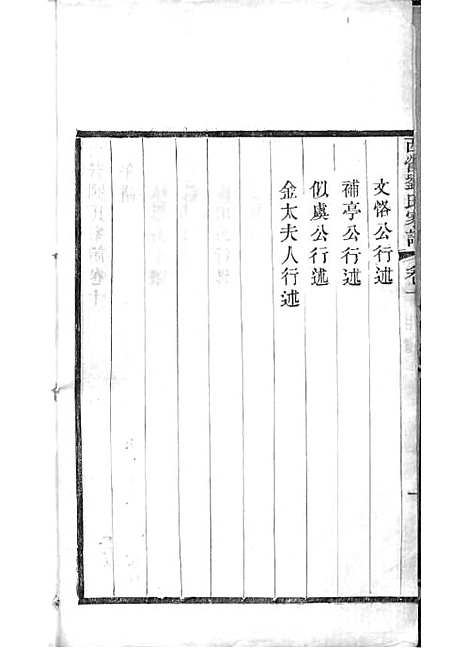 西營劉氏家譜 卷
文恪公行述
補亭公行述
似虞公行述
金太夫人行述